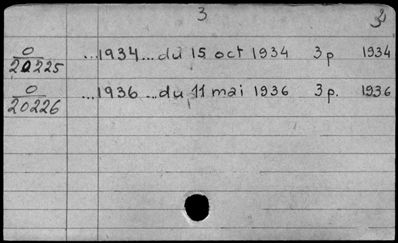 3 3
0/20225 ...1934...du 15 oct 1934 3p 1934
0/20226 ...1936...du 11 mai 1936 3p. 1936